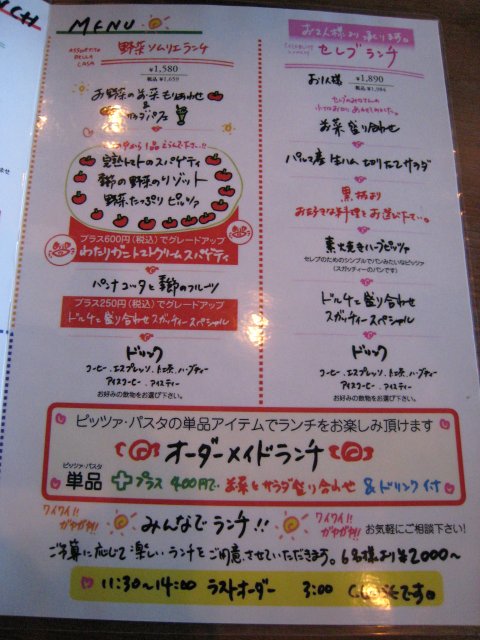 MENU
ASSORTITO
DELLA
CASA
野菜ソムリエランチ
¥1,580
税込 ¥1,659
お野菜のお菜もりあわせ
&
サラダ
中から1品
完熟トマトのスパゲティ
季節の野菜のリゾット
野菜たっぷりピッツァ
プラス600円(税込)でグレードアップ
わたりガニトマトクリームスパゲティ
パンナコッタと季節のフルーツ
プラス250円(税込)でグレードアップ
ドルチェ盛り合わせスガッティースペシャル
ドリンク
コーヒー、エスプレッソ、紅茶、ハーブティー
アイスコーヒー、アイスティー
お好みの飲物をお選び下さい。
お2人様より承ります。
セレブランチ
お1人様 ¥1,890
税込 ¥1,984
お菜盛り合わせ
パルマ産生ハム切りたてサラダ
黒板より
お好きな料理をお選び下さい。
素火焼きハーブピッツァ
セレブのためのシンプルでパンみたいなピッツァ
(スガッティーのパンです)
ドルチェ盛り合わせ
スガッティースペシャル
ドリンク
コーヒー、エスプレッソ、紅茶、ハーブティー
アイスコーヒー、アイスティー
お好みの飲物をお選び下さい。
ピッツァ・パスタの単品アイテムでランチをお楽しみ頂けます
オーダーメイドランチ
ピッツァ・パスタ
単品 プラス 400円で お菜とサラダ盛り合わせ &ドリンク付
ワイワイ!!
ガヤガヤ!!
みんなでランチ!!
ワイワイ!!
ガヤガヤ!!
お気軽にご相談下さい!
ご予算に応じて楽しいランチをご用意させていただきます。6名様より¥2000~
11:30~14:00 ラストオーダー 3:00 CLOSEです。